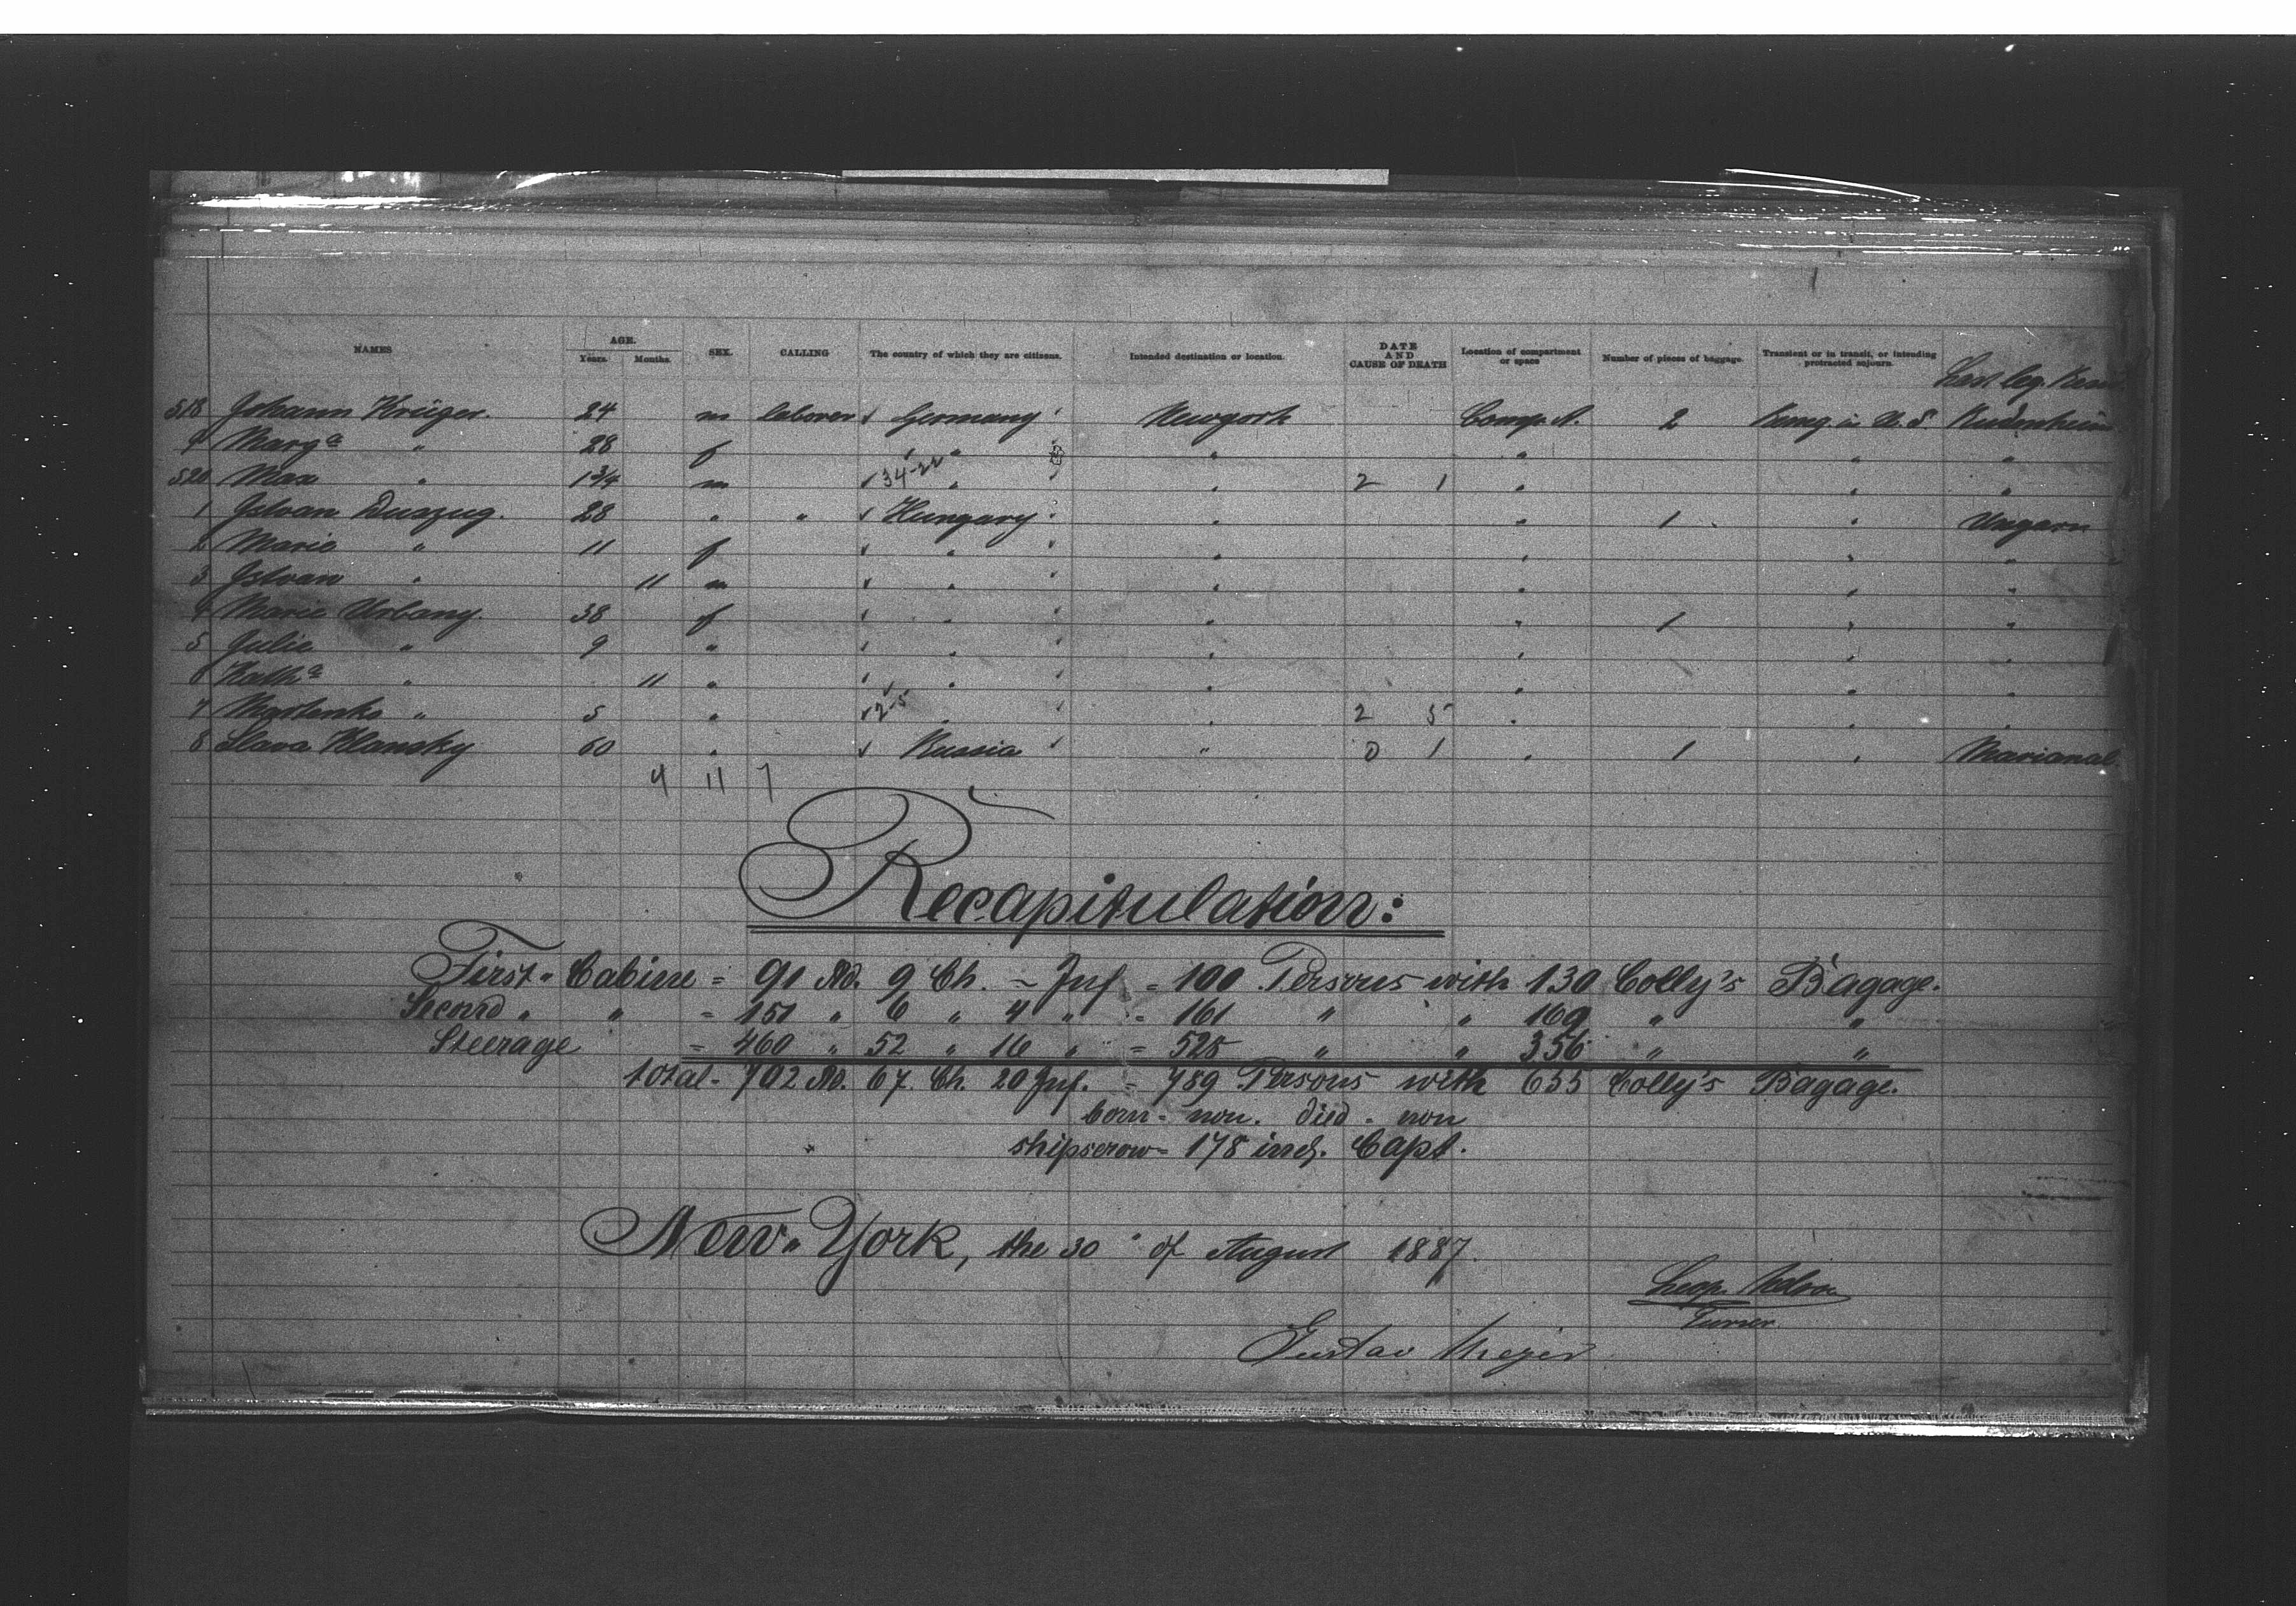 NAMES AGE. Years. Months. SEX. CALLING The country of which they are citizens. Intended destination or location. DATE AND CAUSE OF DEATH Location of compartment or space Number of pieces of baggage. Transient or in transit, or intending protracted sojourn. Last leg.
518 Johann Krüger. 24 m laborer √ Germany Newyork Comp. A. 2 in U. S
9 Marg<sup>a</sup> " 28 f " " " " " "
520 Max " 1 3/4 m √ 34-22 " " 2 1 " " "
1 Istvan Duszug. 28 " " √ Hungary " " 1 " Ungarn
2 Marie " 11 f √ " " " " "
3 Istvan " 11 m √ " " " " "
4 Marie Urbany. 38 f " " " 1 " "
5 Julie " 9 " " " " " "
6 Kath<sup>a</sup> " 11 " " " " " "
7 " 5 " √ 2-5 " " 2 5 " " "
8 Slava Klansky 60 " √ Russia " 0 1 " 1 " Marianal.
4 11 7
Recapitulation:
First " Cabine = 91 Ad. 9 Ch. - Inf = 100 Persons with 130 Colly's Bagage.
Second " " = 151 " 6 " 4 " = 161 " " 169 " "
Steerage = 460 " 52 " 16 " = 528 " " 356 " "
total = 702 Ad. 67. Ch. 20 Inf. = 789 Persons with 655 Colly's Bagage.
born = non. died = non
shipscrow = 178 incl. Capt.
New " York, the 30 " of August 1887.
Leop.
Gustav Meyer